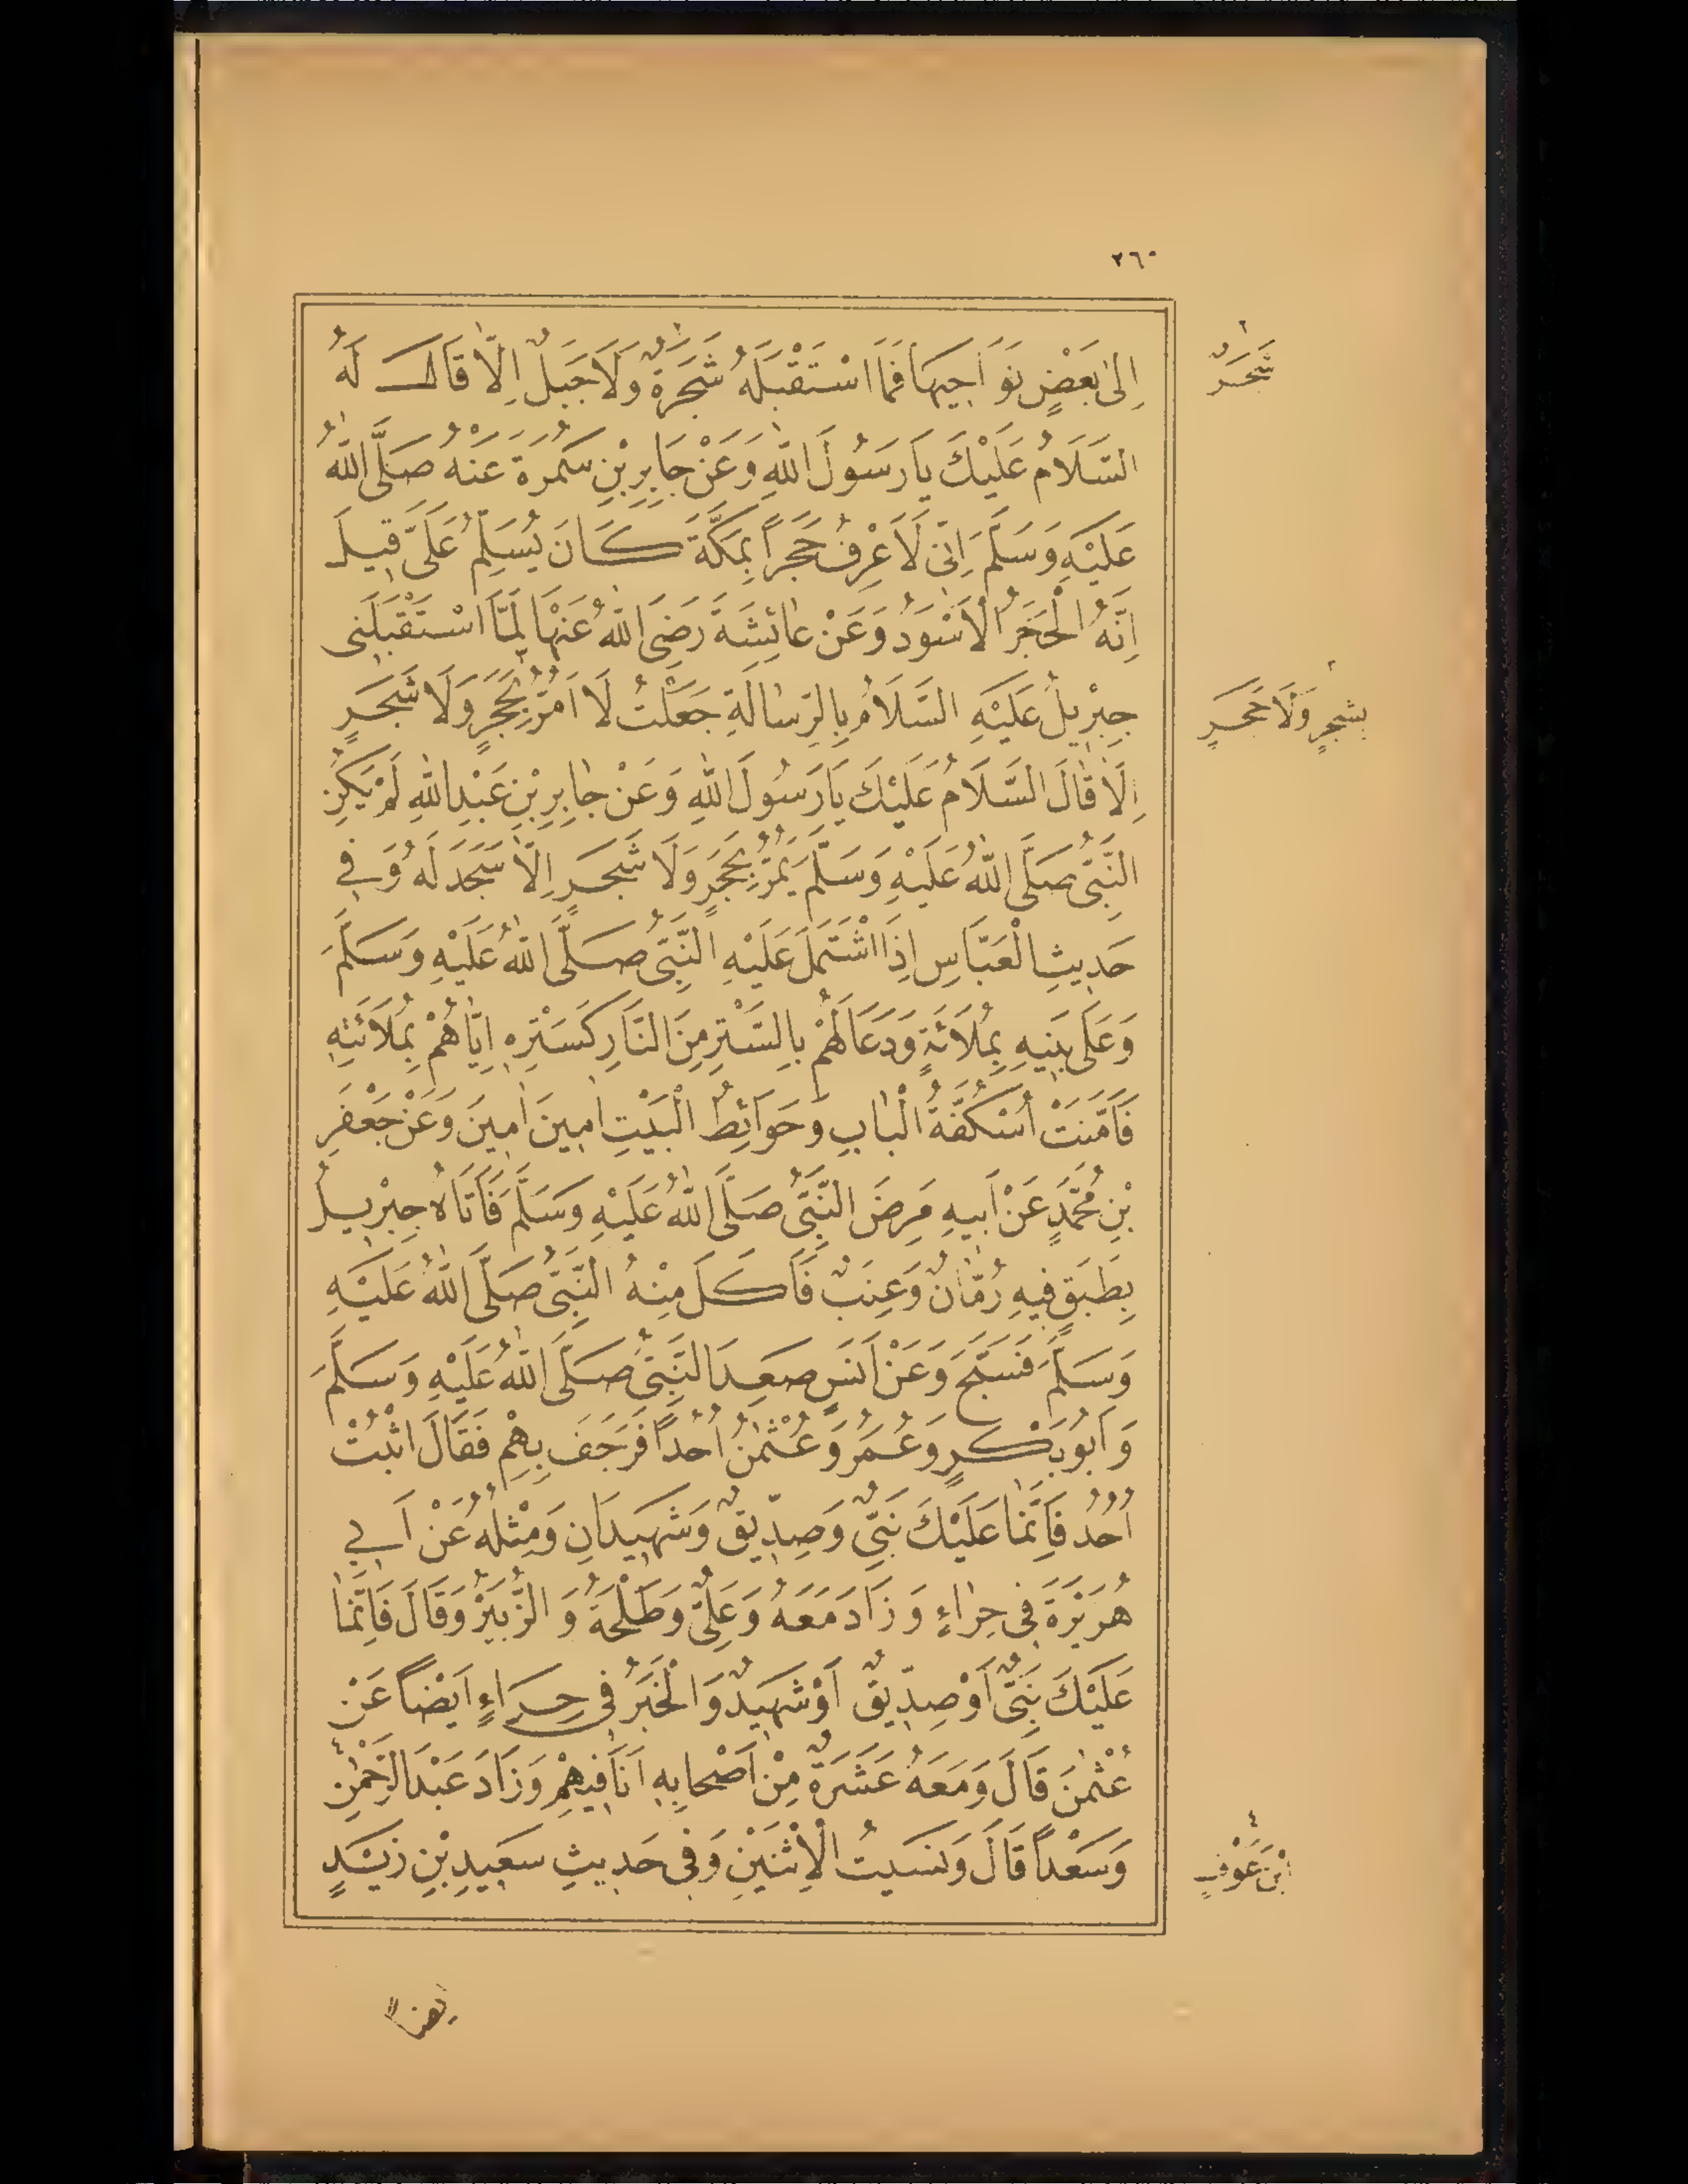 ٢٦٠
اِلىٰ بَعْضِ نَوَاحِيهَا فَمَا اسْتَقْبَلَهُ شَجَرَةٌ وَلَا جَبَلٌ اِلَّا قَالَ لَهُ
شَجَرٌ
السَّلَامُ عَلَيْكَ يَا رَسُولَ اللهِ وَعَنْ جَابِرِ بْنِ سَمُرَةَ عَنْهُ صَلَّى اللهُ
عَلَيْهِ وَسَلَّمَ اِنِّى لَاَعْرِفُ حَجَراً بِمَكَّةَ كَانَ يُسَلِّمُ عَلَىَّ قِيلَ
اِنَّهُ الْحَجَرُ الْاَسْوَدُ وَعَنْ عَائِشَةَ رَضِىَ اللهُ عَنْهَا لَمَّا اسْتَقْبَلَنِى
جِبْرِيلُ عَلَيْهِ السَّلَامُ بِالرِّسَالَةِ جَعَلْتُ لَا اَمُرُّ بِحَجَرٍ وَلَا شَجَرٍ
بِشَجَرٍ وَلَا حَجَرٍ
اِلَّا قَالَ السَّلَامُ عَلَيْكَ يَا رَسُولَ اللهِ وَعَنْ جَابِرِ بْنِ عَبْدِ اللهِ لَمْ يَكُنِ
النَّبِىُّ صَلَّى اللهُ عَلَيْهِ وَسَلَّمَ يَمُرُّ بِحَجَرٍ وَلَا شَجَرٍ اِلَّا سَجَدَ لَهُ وَفِى
حَدِيثِ الْعَبَّاسِ اِذَا اشْتَمَلَ عَلَيْهِ النَّبِىُّ صَلَّى اللهُ عَلَيْهِ وَسَلَّمَ
وَعَلَى بَنِيهِ بِمُلَائَةٍ وَدَعَا لَهُمْ بِالسَّتْرِ مِنَ النَّارِ كَسَتْرِهِ اِيَّاهُمْ بِمُلَائَتِهِ
فَاَمَّنَتْ اُسْكُفَّةُ الْبَابِ وَحَوَائِطُ الْبَيْتِ اٰمِينَ اٰمِينَ وَعَنْ جَعْفَرِ
بْنِ مُحَمَّدٍ عَنْ اَبِيهِ مَرِضَ النَّبِىُّ صَلَّى اللهُ عَلَيْهِ وَسَلَّمَ فَاَتَاهُ جِبْرِيلُ
بِطَبَقٍ فِيهِ رُمَّانٌ وَعِنَبٌ فَاَكَلَ مِنْهُ النَّبِىُّ صَلَّى اللهُ عَلَيْهِ
وَسَلَّمَ فَسَبَّحَ وَعَنْ اَنَسٍ صَعِدَ النَّبِىُّ صَلَّى اللهُ عَلَيْهِ وَسَلَّمَ
وَاَبُو بَكْرٍ وَعُمَرُ وَعُثْمٰنُ اُحُداً فَرَجَفَ بِهِمْ فَقَالَ اثْبُتْ
اُحُدُ فَاِنَّمَا عَلَيْكَ نَبِىٌّ وَصِدِّيقٌ وَشَهِيدَانِ وَمِثْلُهُ عَنْ اَبِى
هُرَيْرَةَ فِى حِرَاءٍ وَزَادَ مَعَهُ وَعَلِىٌّ وَطَلْحَةُ وَالزُّبَيْرُ وَقَالَ فَاِنَّمَا
عَلَيْكَ نَبِىٌّ اَوْ صِدِّيقٌ اَوْ شَهِيدٌ وَالْخَبَرُ فِى حِرَاءٍ اَيْضاً عَنْ
عُثْمٰنَ قَالَ وَمَعَهُ عَشَرَةٌ مِنْ اَصْحَابِهِ اَنَا فِيهِمْ وَزَادَ عَبْدَ الرَّحْمٰنِ
٤
وَسَعْداً قَالَ وَنَسِيتُ الْاِثْنَيْنِ وَفِى حَدِيثِ سَعِيدِ بْنِ زَيْدٍ
٤
ابْنَ عَوْفٍ